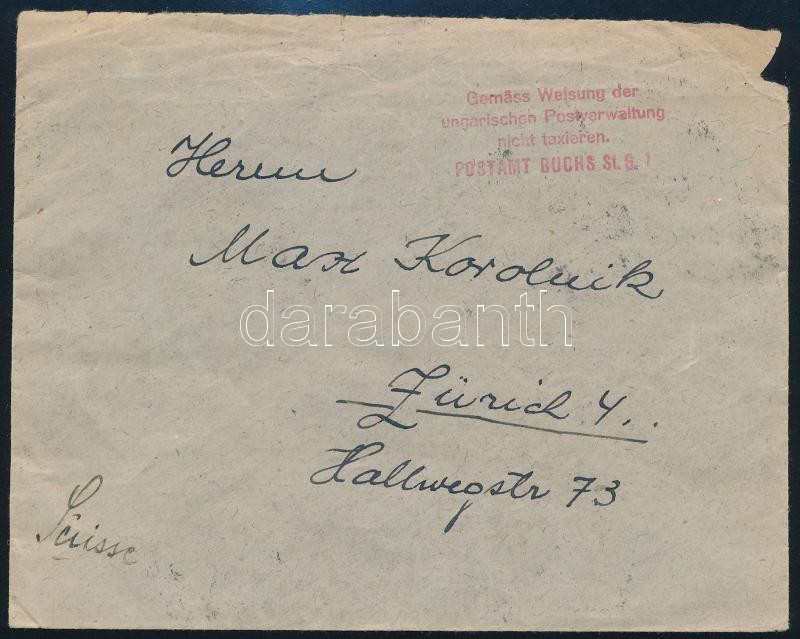 Gemäss Weisung der
ungarischen Postverwaltung
nicht taxieren.
POSTAMT BUCHS St. G. 1
Herrn
Max Korolnik
darabanth
Zürich 4..
Hallwegstr 73
Suisse